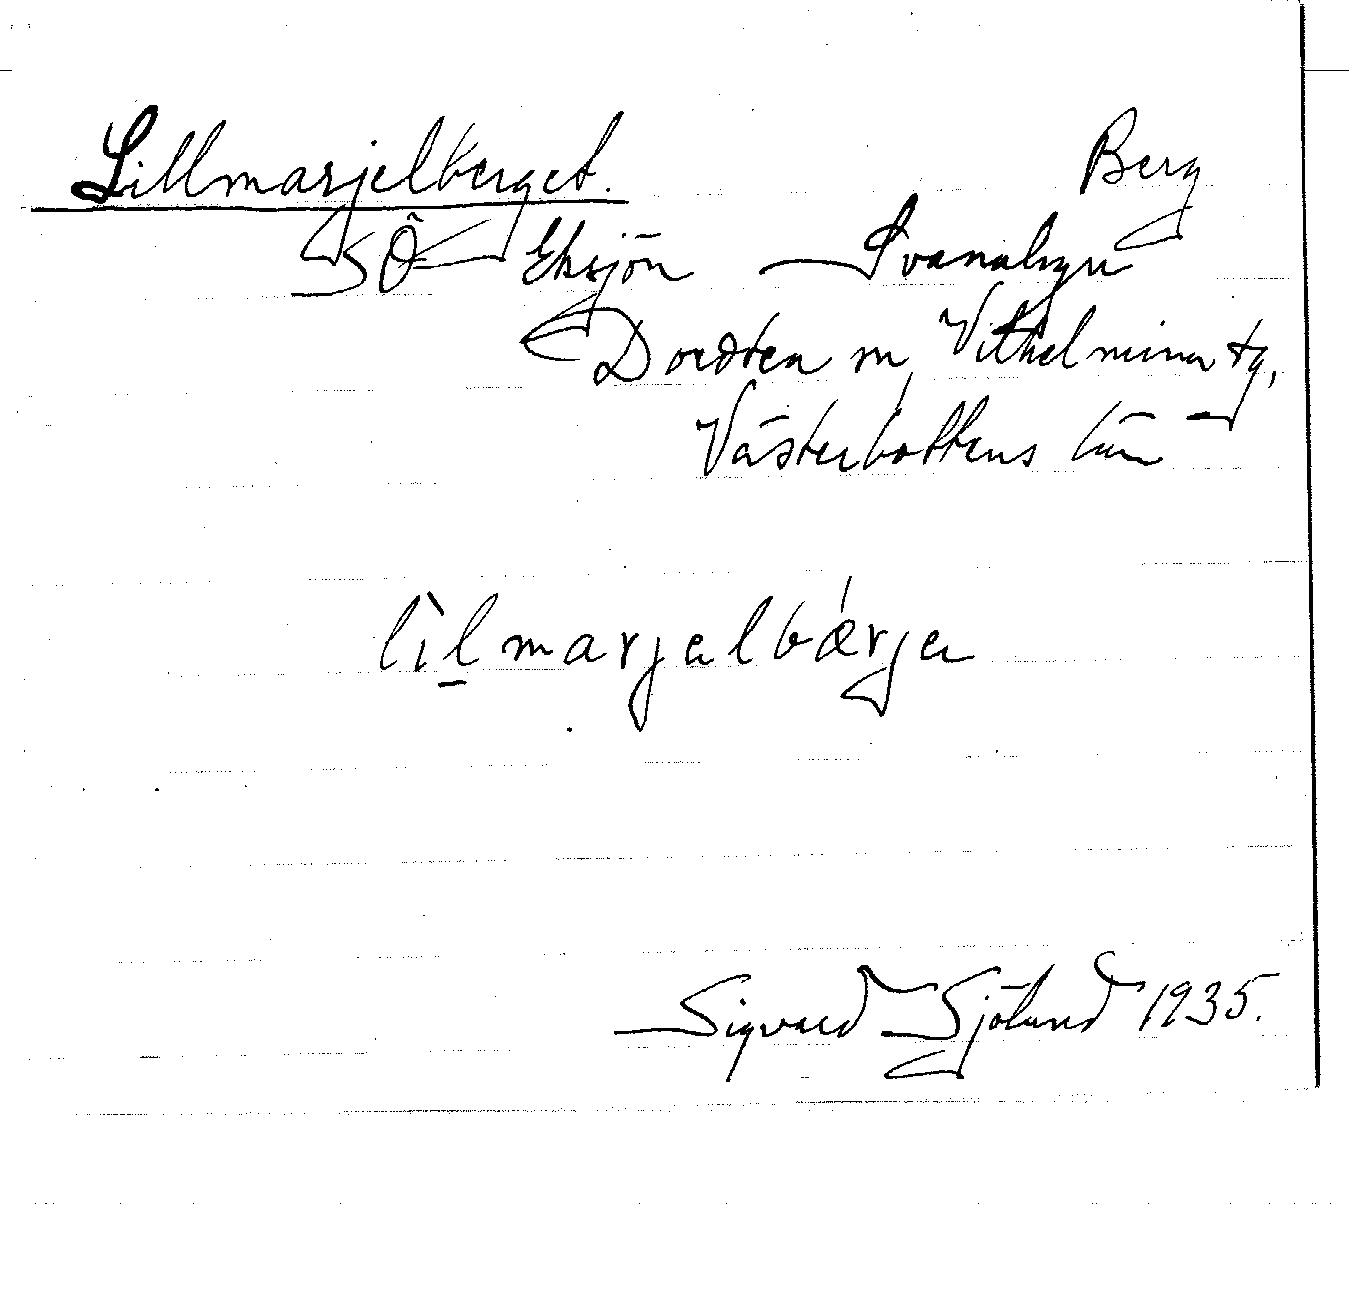 Lillmarjelberget. Berg
SÖ Eksjön Svanabyn
Dorotea sn, Vilhelmina tg,
Västerbottens län
lìlmarjelbǽrje
Sigvard Sjölund 1935.